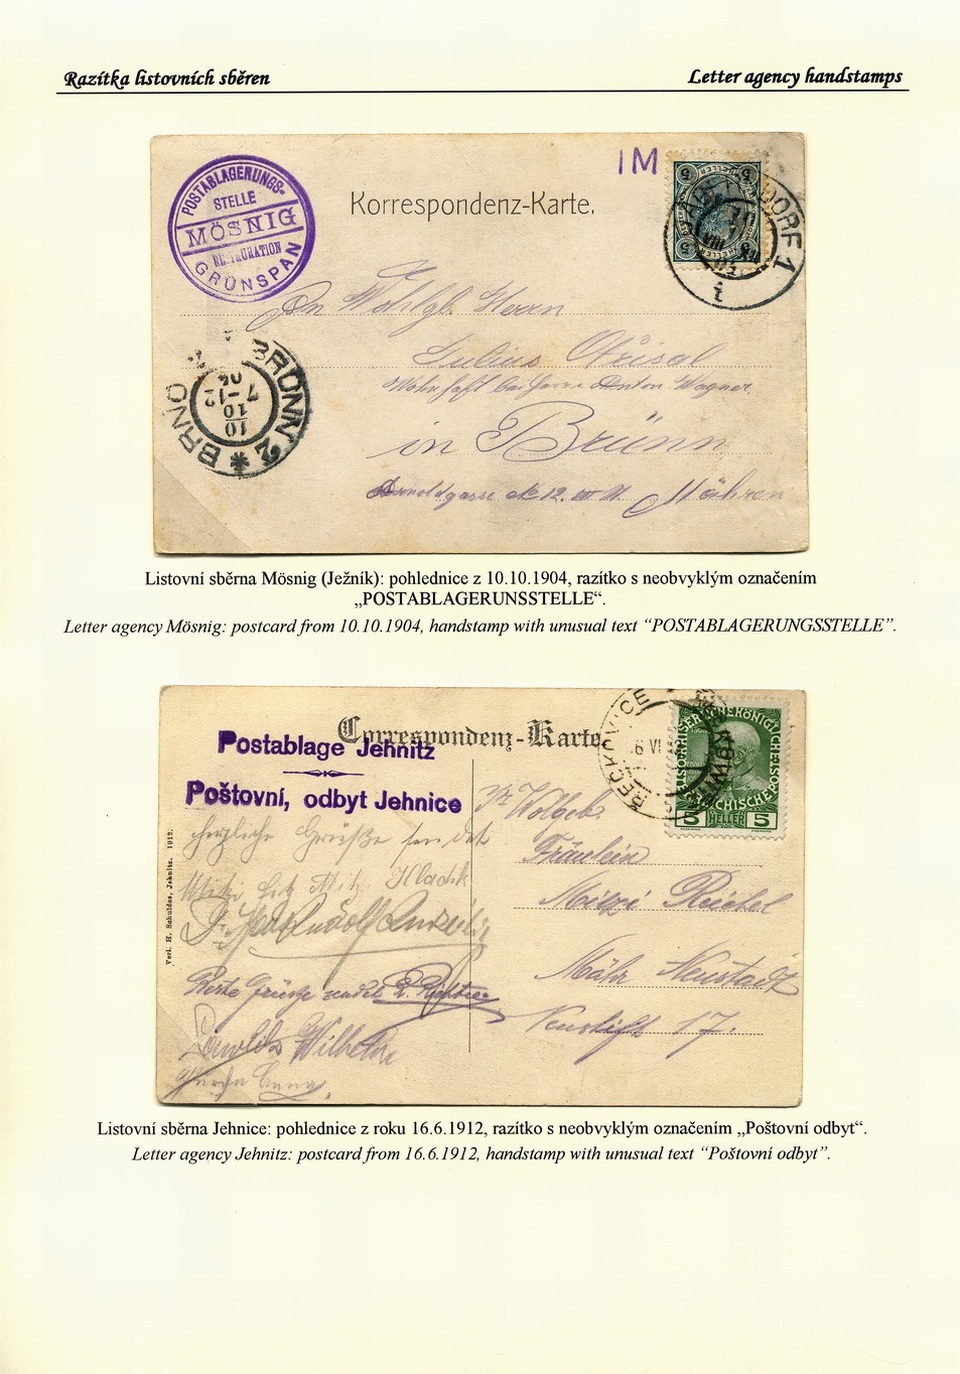 Razítka listovních sběren
Letter agency handstamps
POSTABLAGERUNGS-
STELLE
MÖSNIG
RESTAURATION
GRÜNSPAN
1M
Korrespondenz-Karte.
DORF 1
An Wohlgb. Herrn
Julius
Wohnhaft bei Herrn Anton Wagner
in Brünn
Arnoldgasse № 12.
Mähren
BRÜNN 2 * BRNO
10
10
04
7-12
Listovní sběrna Mösnig (Ježník): pohlednice z 10.10.1904, razítko s neobvyklým označením
„POSTABLAGERUNSSTELLE“.
Letter agency Mösnig: postcard from 10.10.1904, handstamp with unusual text “POSTABLAGERUNGSSTELLE”.
Correspondenz-Karte
Postablage Jehnitz
Poštovní, odbyt Jehnice
ŘEČKOVICE
5 HELLER 5
Wolgeb.
Fräulein
Mitzi Reichel
Mähr Neustadt
Neustift 17.
herzliche Grüße sendet
Hladik
Rudolf
Beste Grüsse sendet
Wilhelm
Verl. H. Schuldes, Jehnitz. 1912.
Listovní sběrna Jehnice: pohlednice z roku 16.6.1912, razítko s neobvyklým označením „Poštovní odbyt“.
Letter agency Jehnitz: postcard from 16.6.1912, handstamp with unusual text “Poštovní odbyt”.